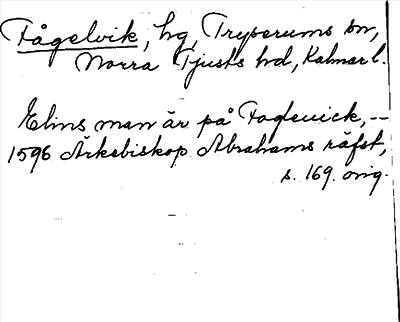 Fågelvik, hg, Tryserums sn,
Norra Tjusts hd, Kalmar l.
Elins man är på Fogeuick, --
1596 Ärkebiskop Abrahams räfst,
s. 169. orig.